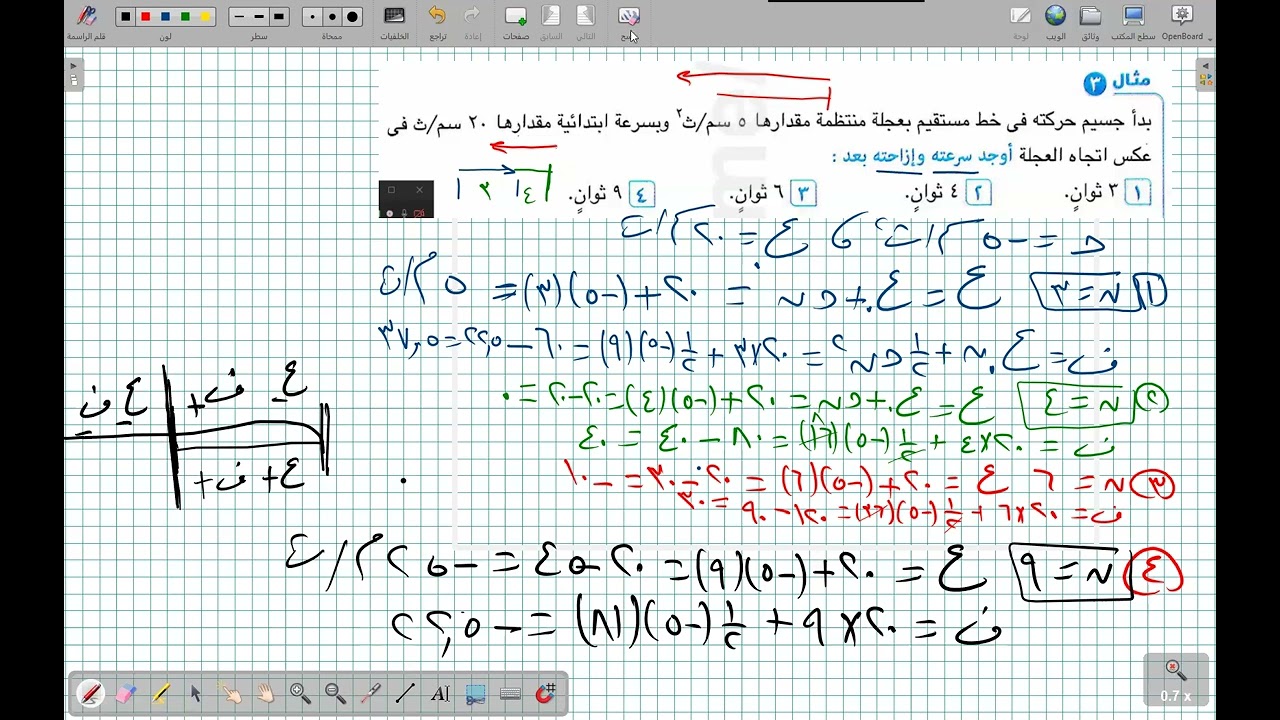 قلم الراسمة
لون
سطر
ممحاة
الخلفيات
تراجع
إعادة
صفحات
السابق
التالي
مسح
لوحة
الويب
وثائق
سطح المكتب
OpenBoard
مثال ٣
بدأ جسيم حركته فى خط مستقيم بعجلة منتظمة مقدارها ٥ سم/ث٢ وبسرعة ابتدائية مقدارها ٢٠ سم/ث فى
عكس اتجاه العجلة أوجد سرعته وإزاحته بعد :
١ ٣ ثوانٍ. ٢ ٤ ثوانٍ. ٣ ٦ ثوانٍ. ٤ ٩ ثوانٍ.
٣ ٤
حـ = -٥ سم/ث٢ ، ع. = ٢٠ سم/ث
١ ن = ٣ ع = ع. + حـ ن = ٢٠ + (-٥)(٣) = ٥ سم/ث
ف = ع. ن + ١/٢ حـ ن٢ = ٢٠×٣ + ١/٢ (-٥)(٩) = ٦٠ - ٢٢,٥ = ٣٧,٥
٢ ن = ٤ ع = ع. + حـ ن = ٢٠ + (-٥)(٤) = ٢٠ - ٢٠ = ٠
ف = ٢٠×٤ + ١/٢ (-٥)(١٦) = ٨٠ - ٤٠ = ٤٠
٣ ن = ٦ ع = ٢٠ + (-٥)(٦) = ٢٠ - ٣٠ = -١٠
ف = ٢٠×٦ + ١/٢ (-٥)(٣٦) = ١٢٠ - ٩٠ = ٣٠
٤ ن = ٩ ع = ٢٠ + (-٥)(٩) = ٢٠ - ٤٥ = -٢٥ سم/ث
ف = ٢٠×٩ + ١/٢ (-٥)(٨١) = -٢٢,٥
ع - ف +
ع - ف -
ع + ف +
AI
0.7 x